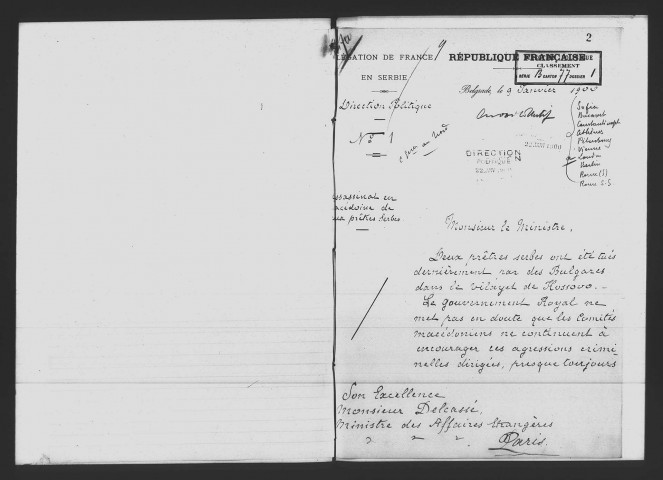 2
LÉGATION DE FRANCE
EN SERBIE
Direction Politique
N° 1
RÉPUBLIQUE FRANÇAISE
CLASSEMENT
SÉRIE B CARTON 77 DOSSIER 1
Belgrade, le 9 Janvier 1900
Sofia
Bucarest
Constantinople
Athènes
Pétersbourg
Vienne
Londres
Berlin
Rome (S)
Rome S.S.
DIRECTION
POLITIQUE
22 JANV 1900
ssassinat en
acédoine de
ux prêtres serbes
Monsieur le Ministre,
Deux prêtres serbes ont été tués
dernièrement par des Bulgares
dans le vilayet de Kossovo. -
Le gouvernement Royal ne
met pas en doute que les Comités
macédoniens ne continuent à
encourager ces agressions crimi
nelles dirigées, presque toujours
Son Excellence
Monsieur Delcassé,
Ministre des Affaires Etrangères
Paris.